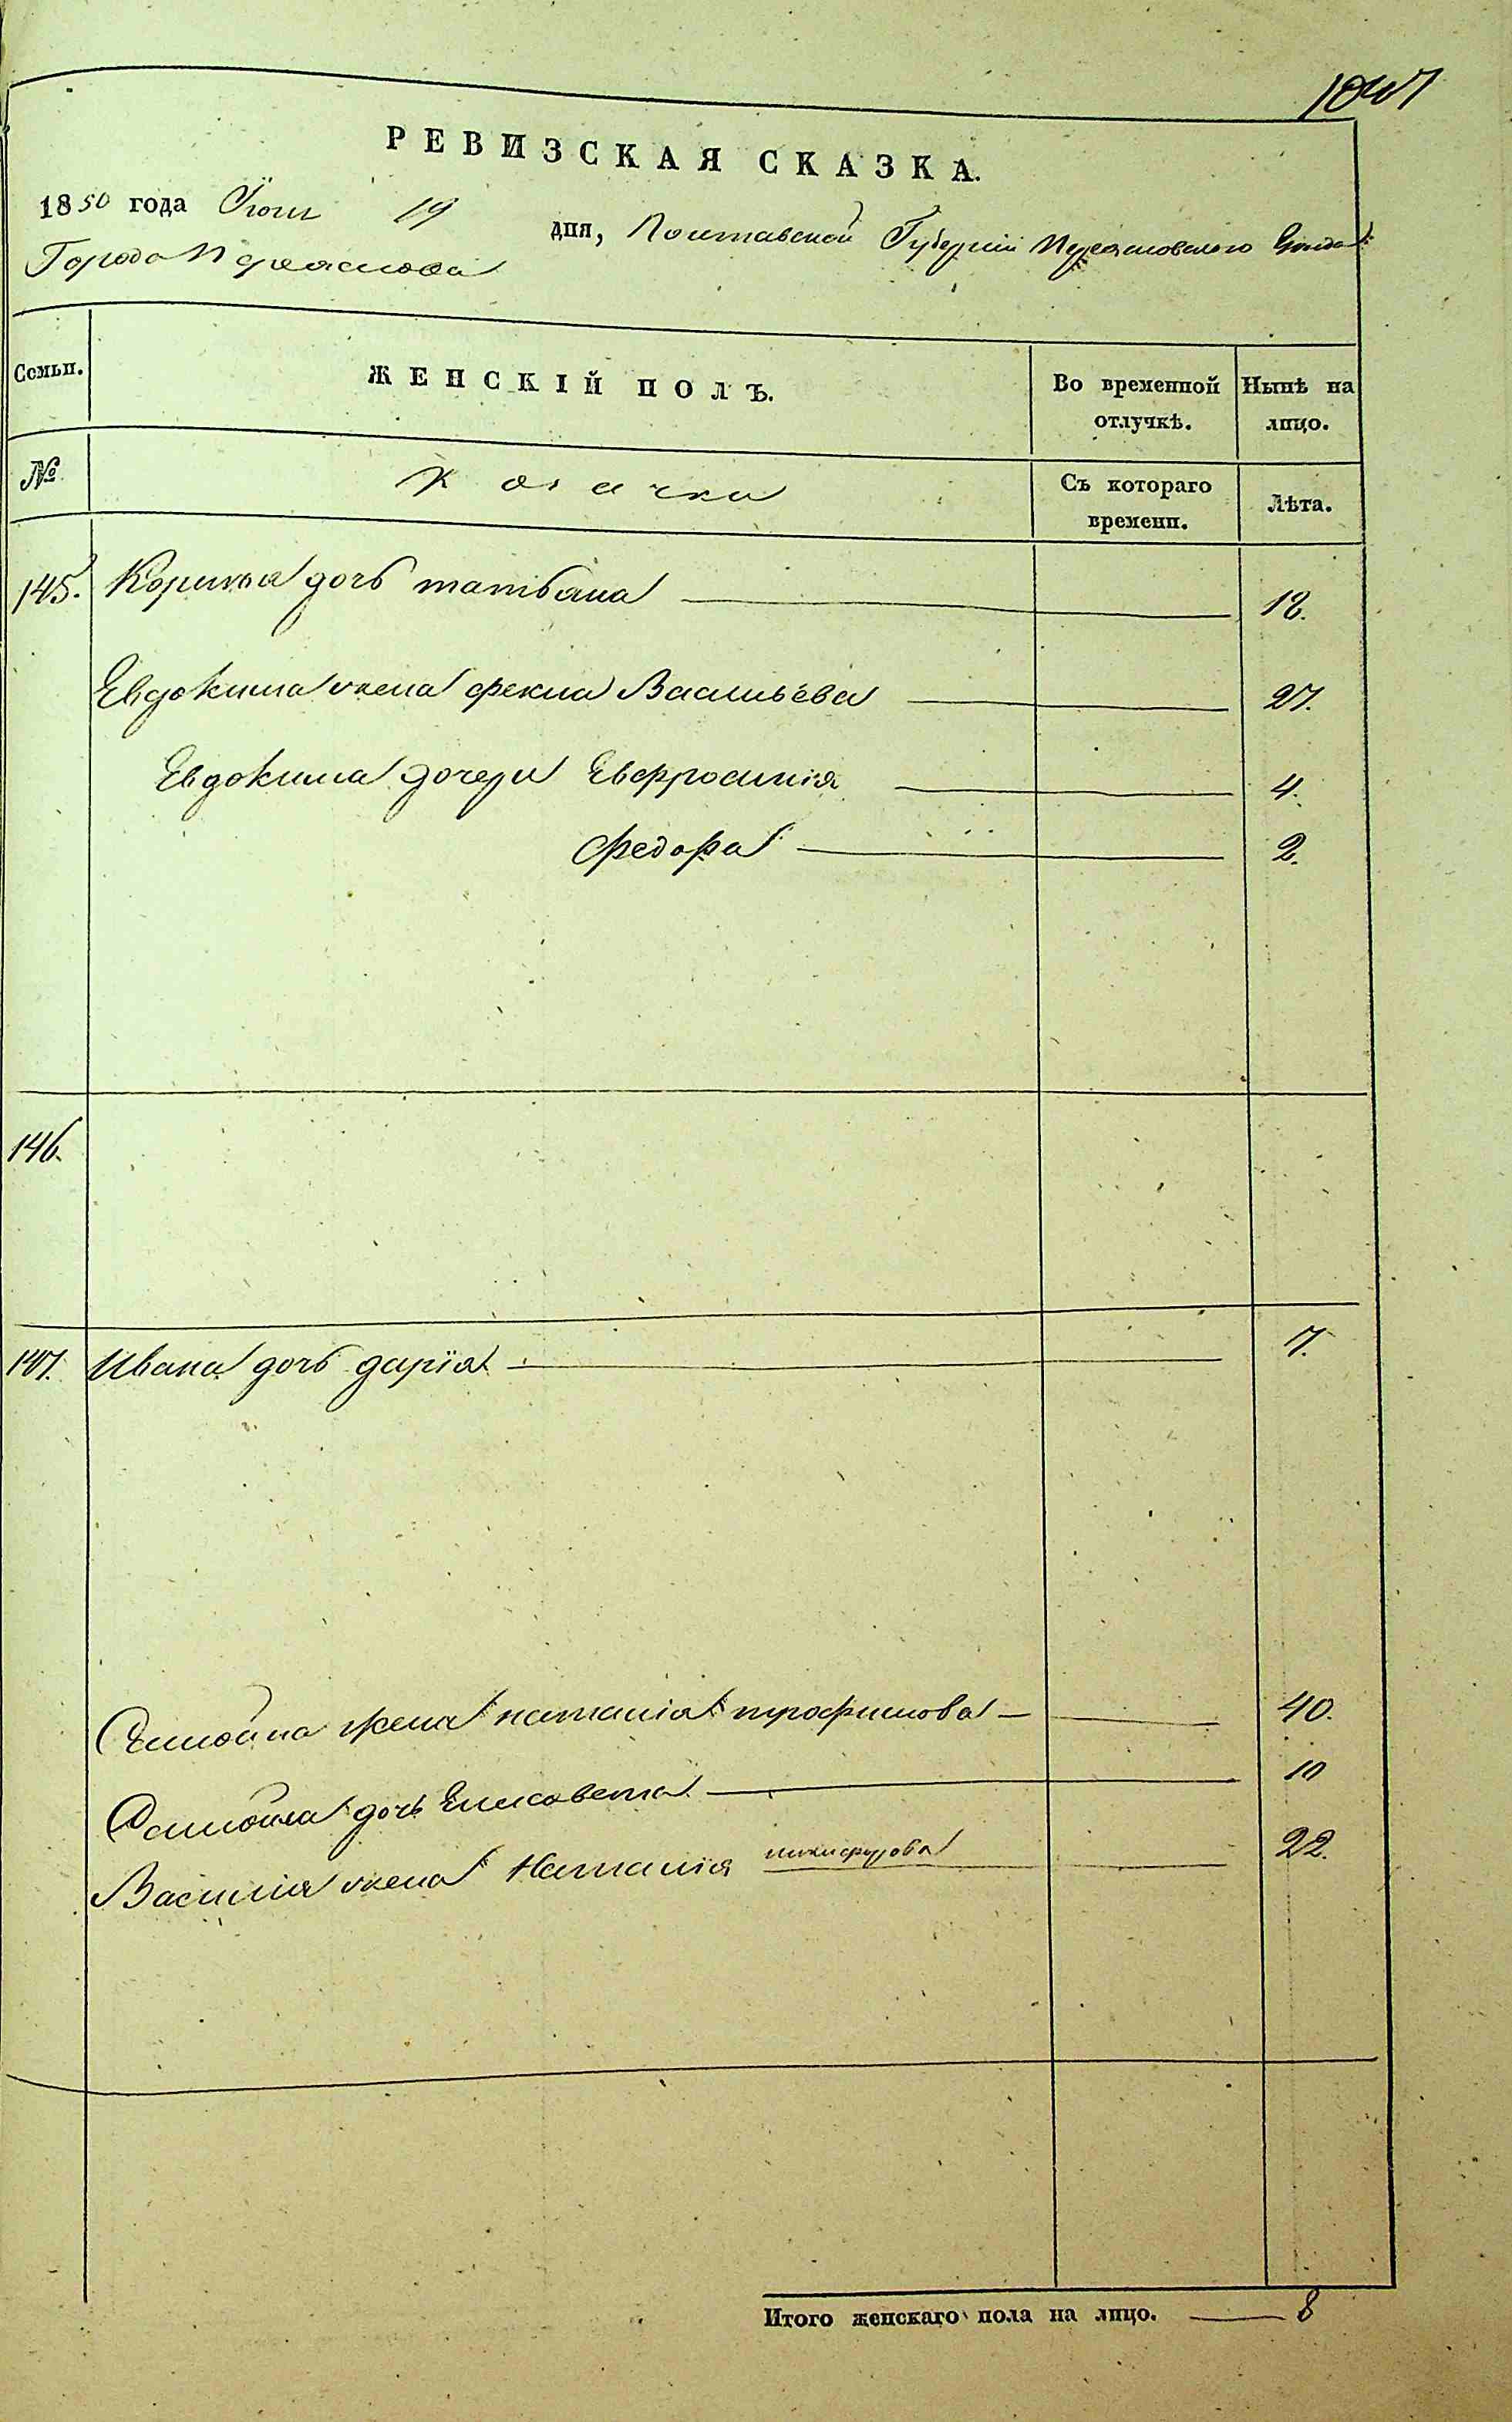 1047
РЕВИЗСКАЯ СКАЗКА.
1850 года Іюня 19 дня, Полтавской Губерніи Переяславского Уезда
Города Переяслова
Семьи. ЖЕНСКІЙ ПОЛЪ. Во временной отлучкѣ. Нынѣ на лицо.
№ Козачки Съ котораго времени. Лѣта.
145. Корнѣя дочь татьяна 18.
Евдокима жена фекла Васильева 27.
Евдокима дочери Евфросинія 4.
Федора 2.
146.
147. Ивана дочь дарія 7.
Самойла жена наталія трофимова 40.
Самойла дочь Елисавета 10
Василия жена Наталія никифорова 22.
Итого женскаго пола на лицо. 8